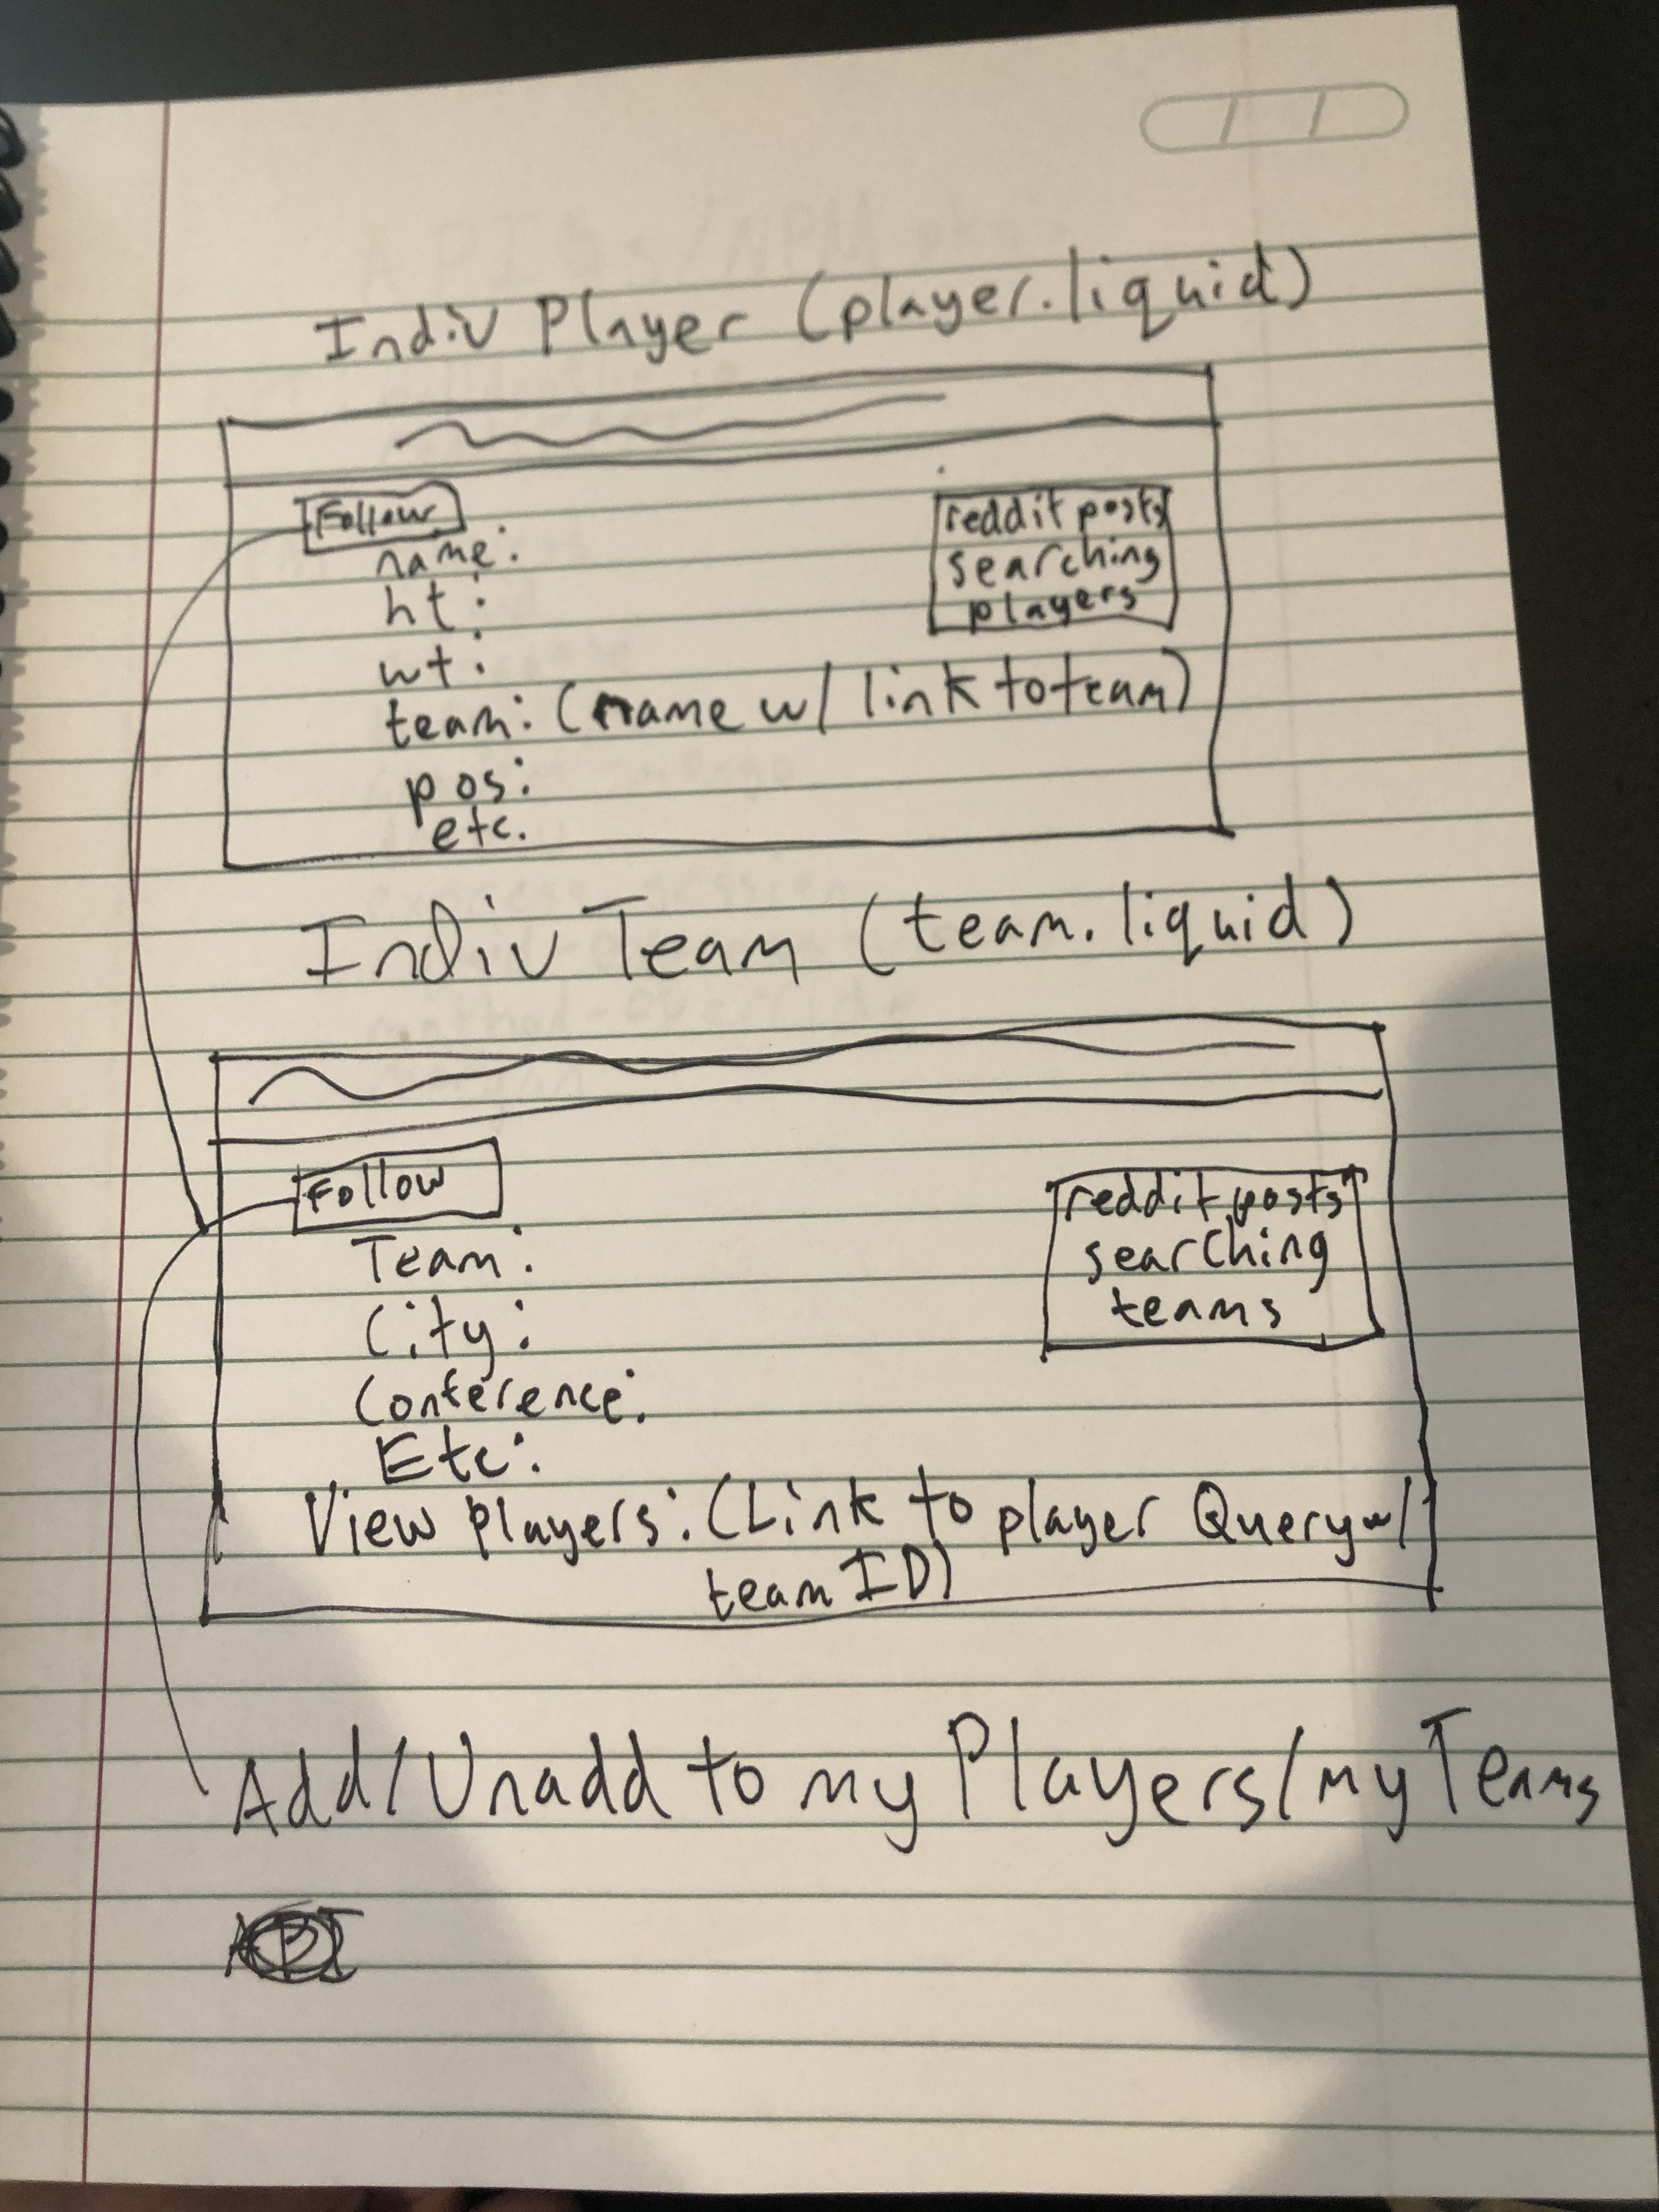 Indiv Player (player.liquid)
Follow
name:
ht:
wt:
team: (name w/ link to team)
pos:
etc.
reddit posts
searching
players
Indiv Team (team.liquid)
Follow
Team:
City:
Conference:
Etc:
View players: (Link to player Query w/
team ID)
reddit posts
searching
teams
Add/Unadd to my Players/my Teams